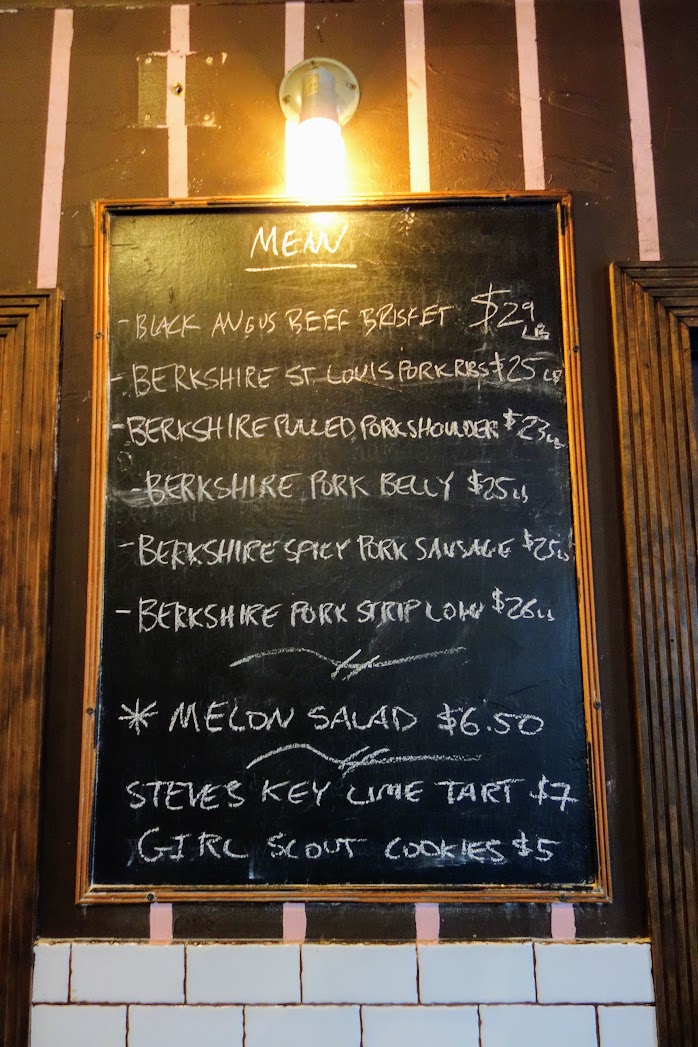 MENU
- BLACK ANGUS BEEF BRISKET $29 LB
- BERKSHIRE ST LOUIS PORK RIBS $25 LB
- BERKSHIRE PULLED PORK SHOULDER $23 LB
- BERKSHIRE PORK BELLY $25 LB
- BERKSHIRE SPICY PORK SAUSAGE $25 LB
- BERKSHIRE PORK STRIP LOIN $26 LB
* MELON SALAD $6.50
STEVE'S KEY LIME TART $7
GIRL SCOUT COOKIES $5